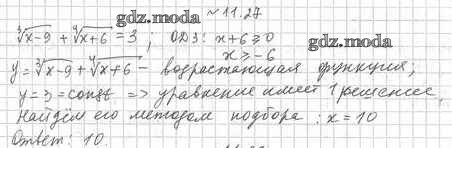 gdz.moda
~ 11.27
∛x-9 + ∜x+6 = 3 ; ОДЗ: x+6 ⩾ 0
gdz.moda
x ⩾ -6
y = ∛x-9 + ∜x+6 - возрастающая функция;
y = 3 = const => уравнение имеет 1 решение,
Найдём его методом подбора : x = 10
Ответ: 10.